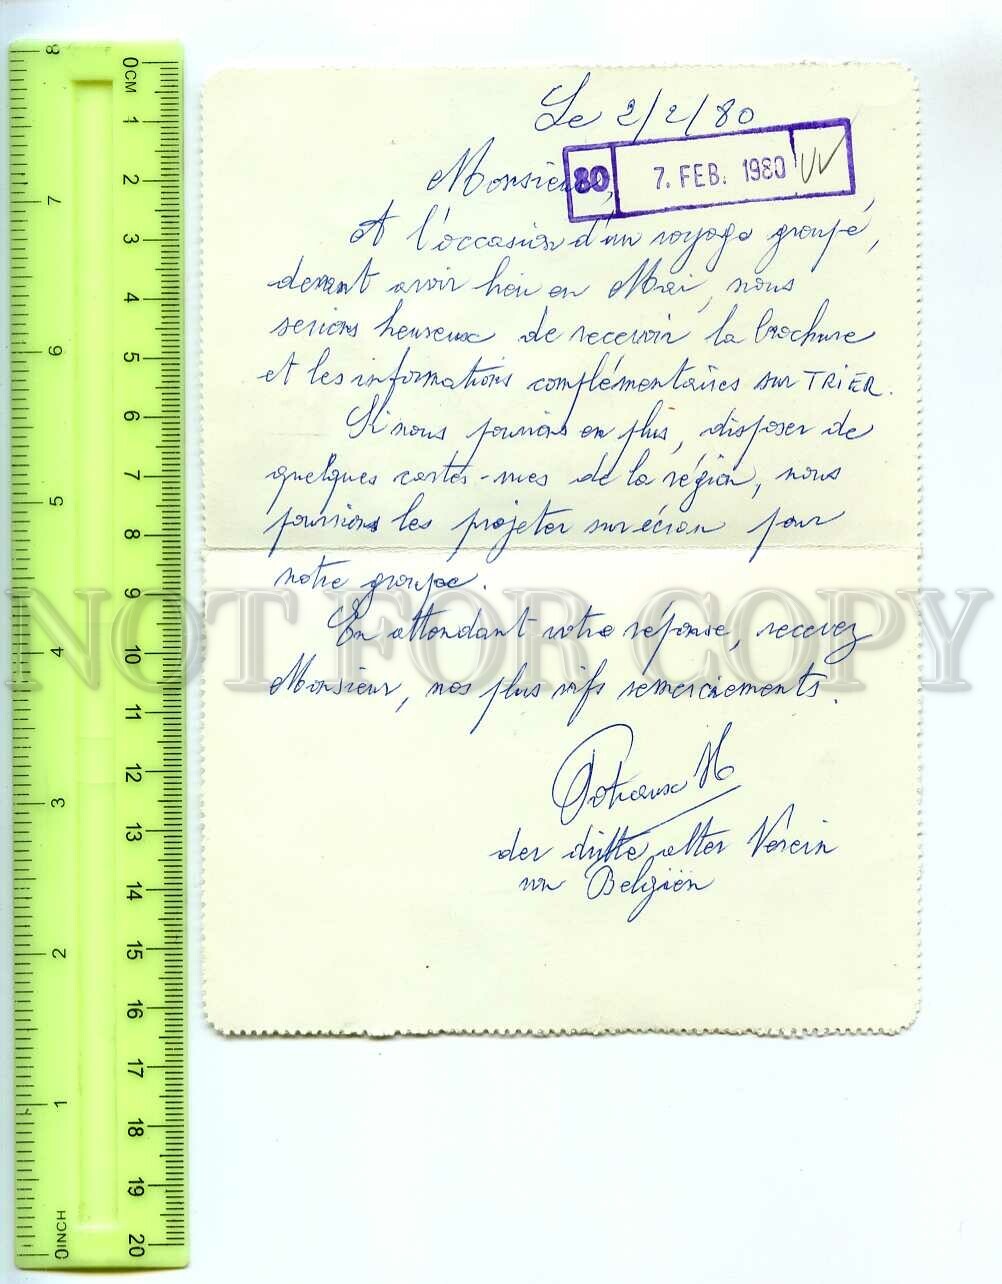 Le 2/2/80
80 7. FEB. 1980
Monsieur,
A l'occasion d'un voyage groupé,
devant avoir lieu en Mai, nous
serions heureux de recevoir la brochure
et les informations complémentaires sur TRIER.
Si nous pouvions en plus, disposer de
quelques cartes-vues de la région, nous
pourrions les projeter sur écran pour
notre groupe.
En attendant votre réponse, recevez
Monsieur, nos plus vifs remerciements.
der dritte alter Verein
von Belgiën
NOT FOR COPY
0CM 1 2 3 4 5 6 7 8 9 10 11 12 13 14 15 16 17 18 19 20
0INCH 1 2 3 4 5 6 7 8